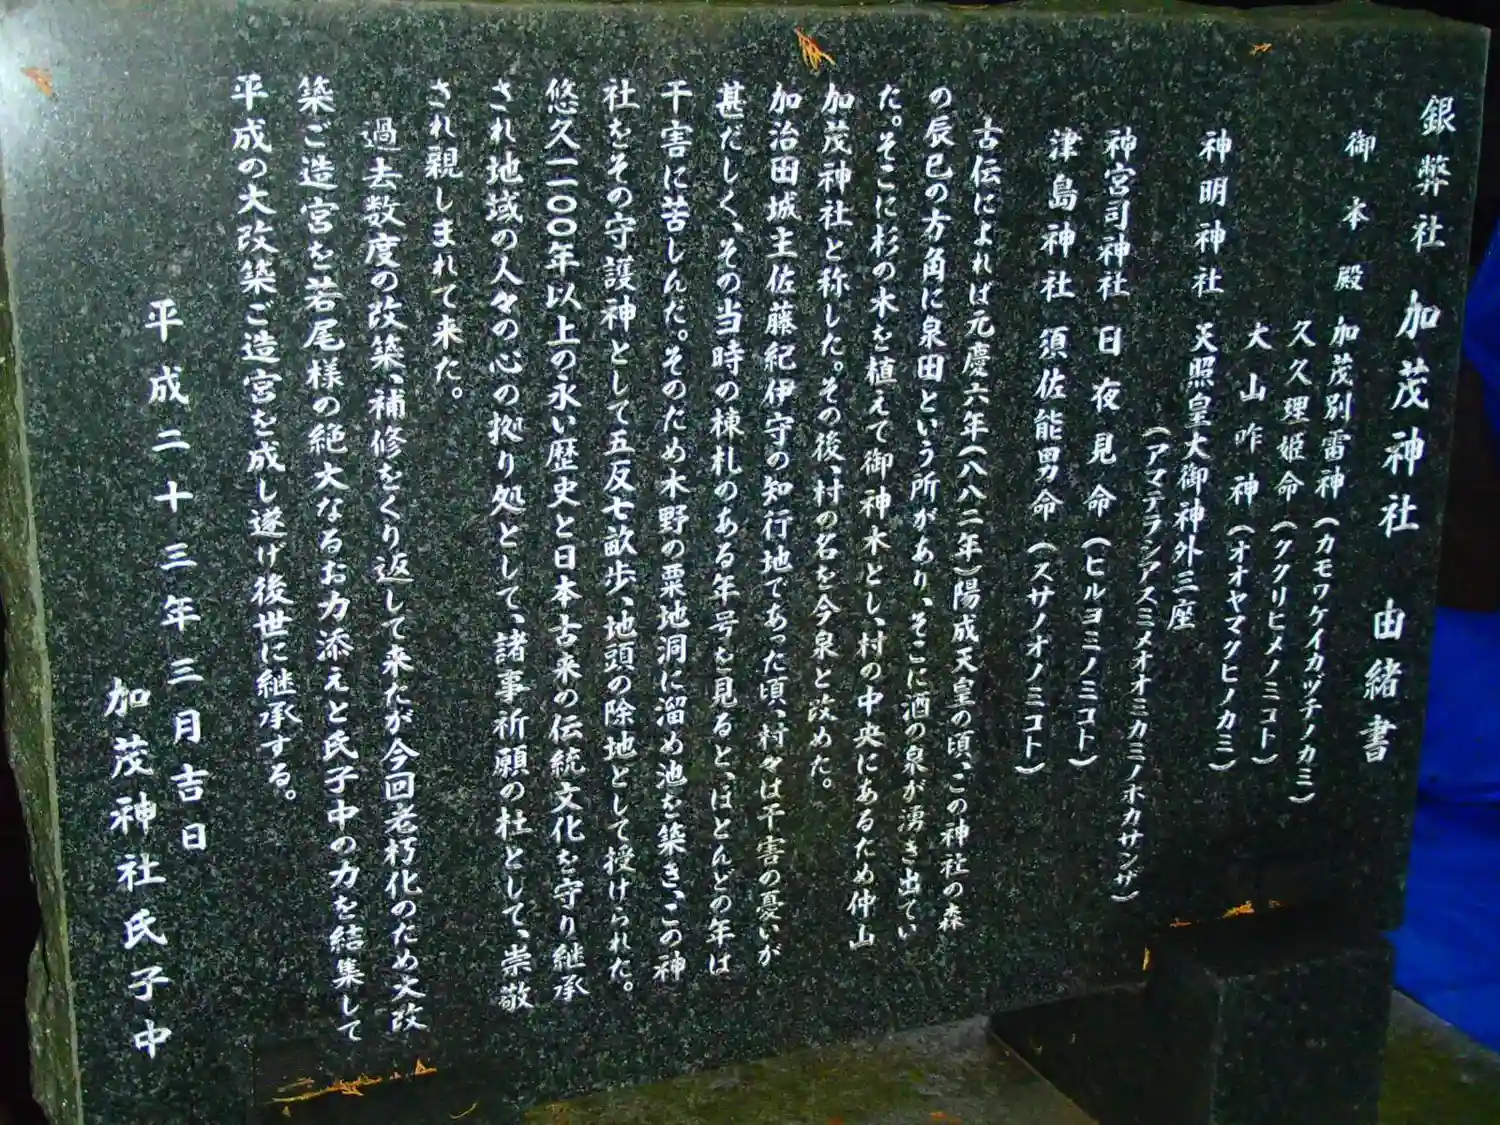 銀幣社 加茂神社 由緒書
御本殿 加茂別雷神（カモワケイカヅチノカミ）
久久理姫命（ククリヒメノミコト）
大山咋神（オオヤマクヒノカミ）
神明神社 天照皇大御神外三座
（アマテラシアスミメオオミカミノホカサンザ）
神宮司神社 日夜見命（ヒルヨミノミコト）
津島神社 須佐能男命（スサノオノミコト）
古伝によれば元慶六年（八八二年）陽成天皇の頃、この神社の森
の辰巳の方角に泉田という所があり、そこに酒の泉が湧き出てい
た。そこに杉の木を植えて御神木とし、村の中央にあるため仲山
加茂神社と称した。その後、村の名を今泉と改めた。
加治田城主佐藤紀伊守の知行地であった頃、村々は干害の憂いが
甚だしく、その当時の棟札のある年号を見ると、ほとんどの年は
干害に苦しんだ。そのため木野の粟地洞に溜め池を築き、この神
社をその守護神として五反七畝歩、地頭の除地として授けられた。
悠久一一〇〇年以上の永い歴史と日本古来の伝統文化を守り継承
され地域の人々の心の拠り処として、諸事祈願の杜として、崇敬
され親しまれて来た。
過去数度の改築、補修をくり返して来たが今回老朽化のため大改
築ご造宮を若尾様の絶大なるお力添えと氏子中の力を結集して
平成の大改築ご造宮を成し遂げ後世に継承する。
平成二十三年三月吉日
加茂神社氏子中